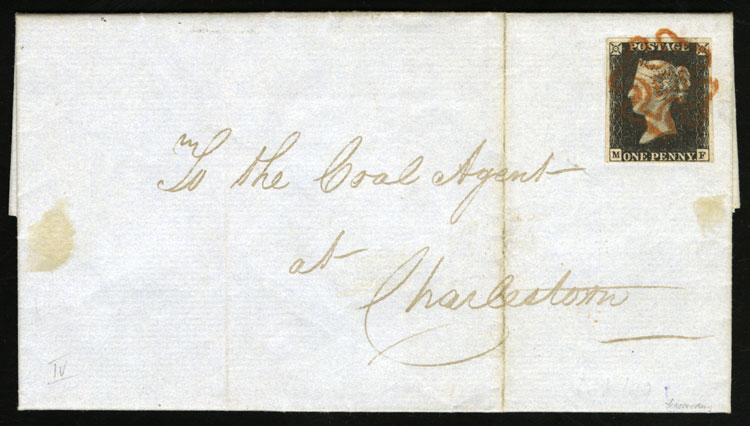 POSTAGE
M ONE PENNY F
To the Coal Agent
at
Charlestown
IV